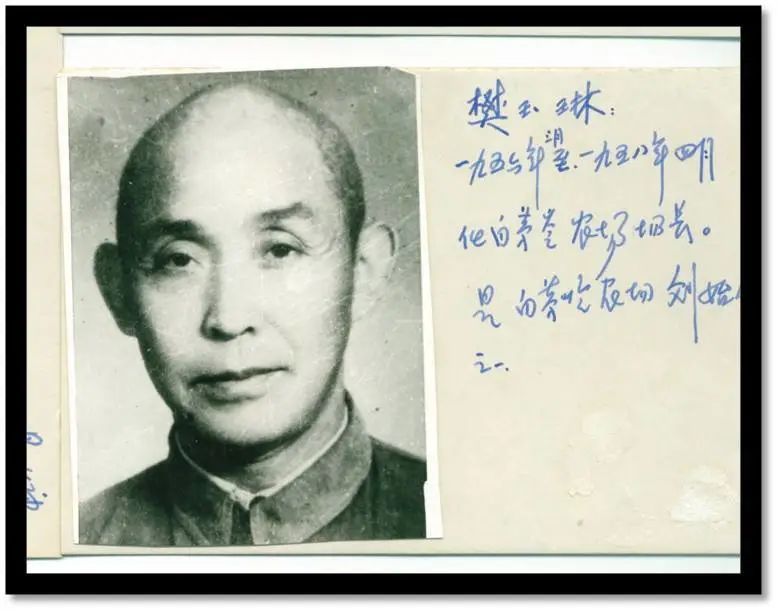 樊玉琳：
一九五六年三月至一九五八年四月
任白茅岭农场场长。
是白茅岭农场创始人
之一.